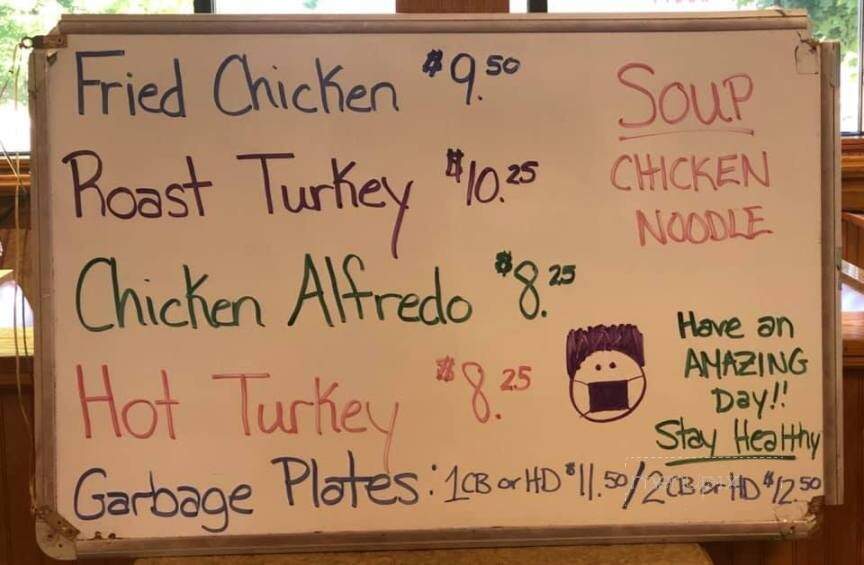 Fried Chicken $9.50
Roast Turkey $10.25
Chicken Alfredo $8.25
Hot Turkey $8.25
Garbage Plates: 1CB or HD $11.50/2CB or HD $12.50
SOUP
CHICKEN
NOODLE
Have an
AMAZING
Day!!
Stay Healthy